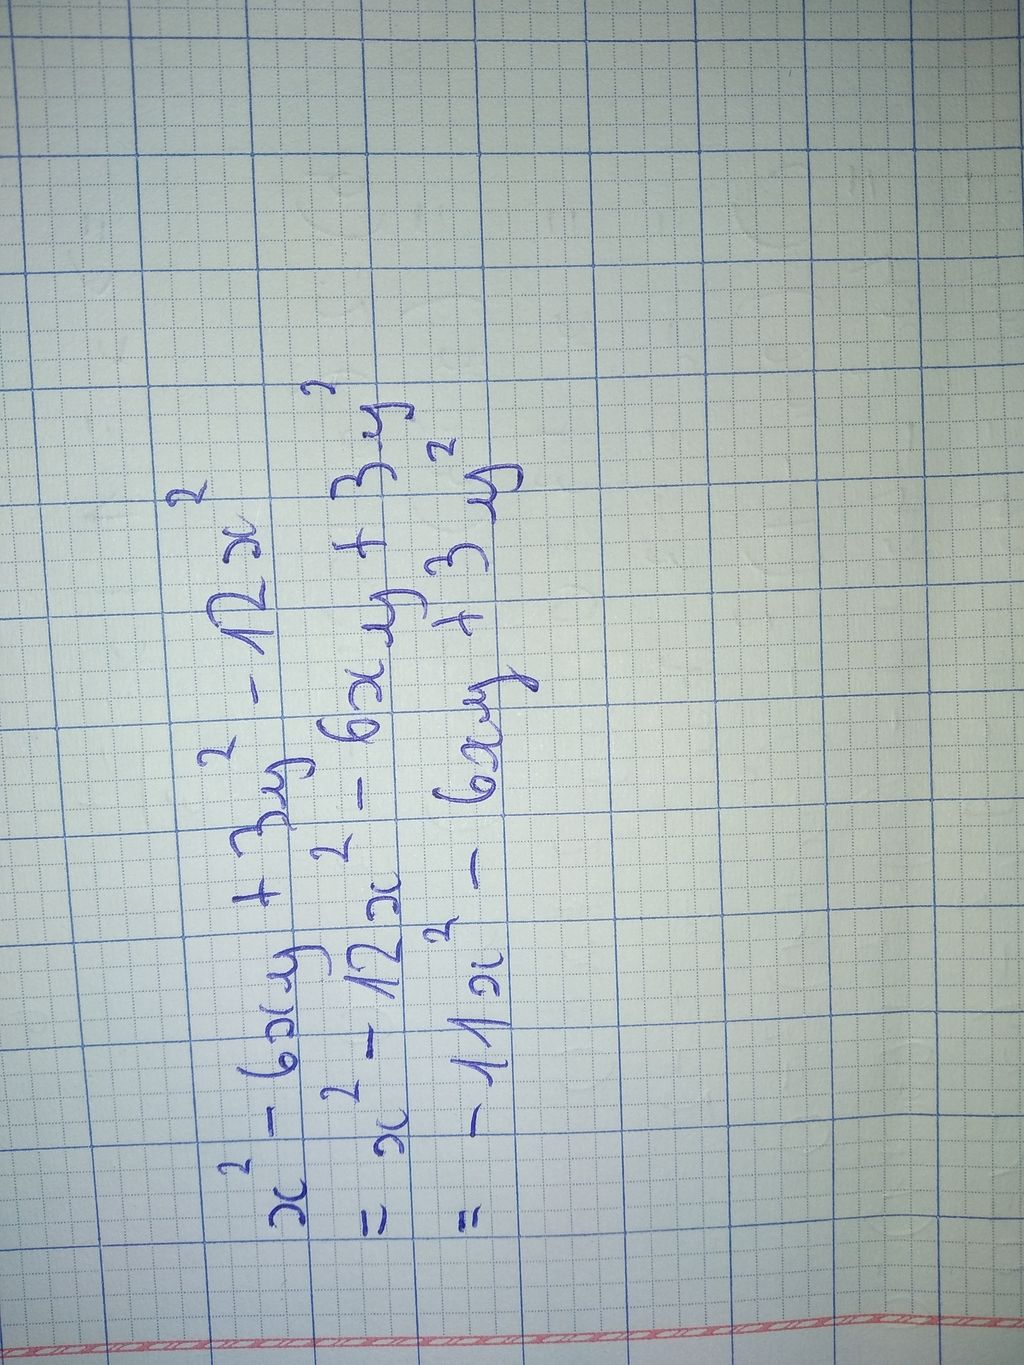 x² - 6xy + 3y² - 12x²
= x² - 12x² - 6xy + 3y²
= - 11x² - 6xy + 3y²